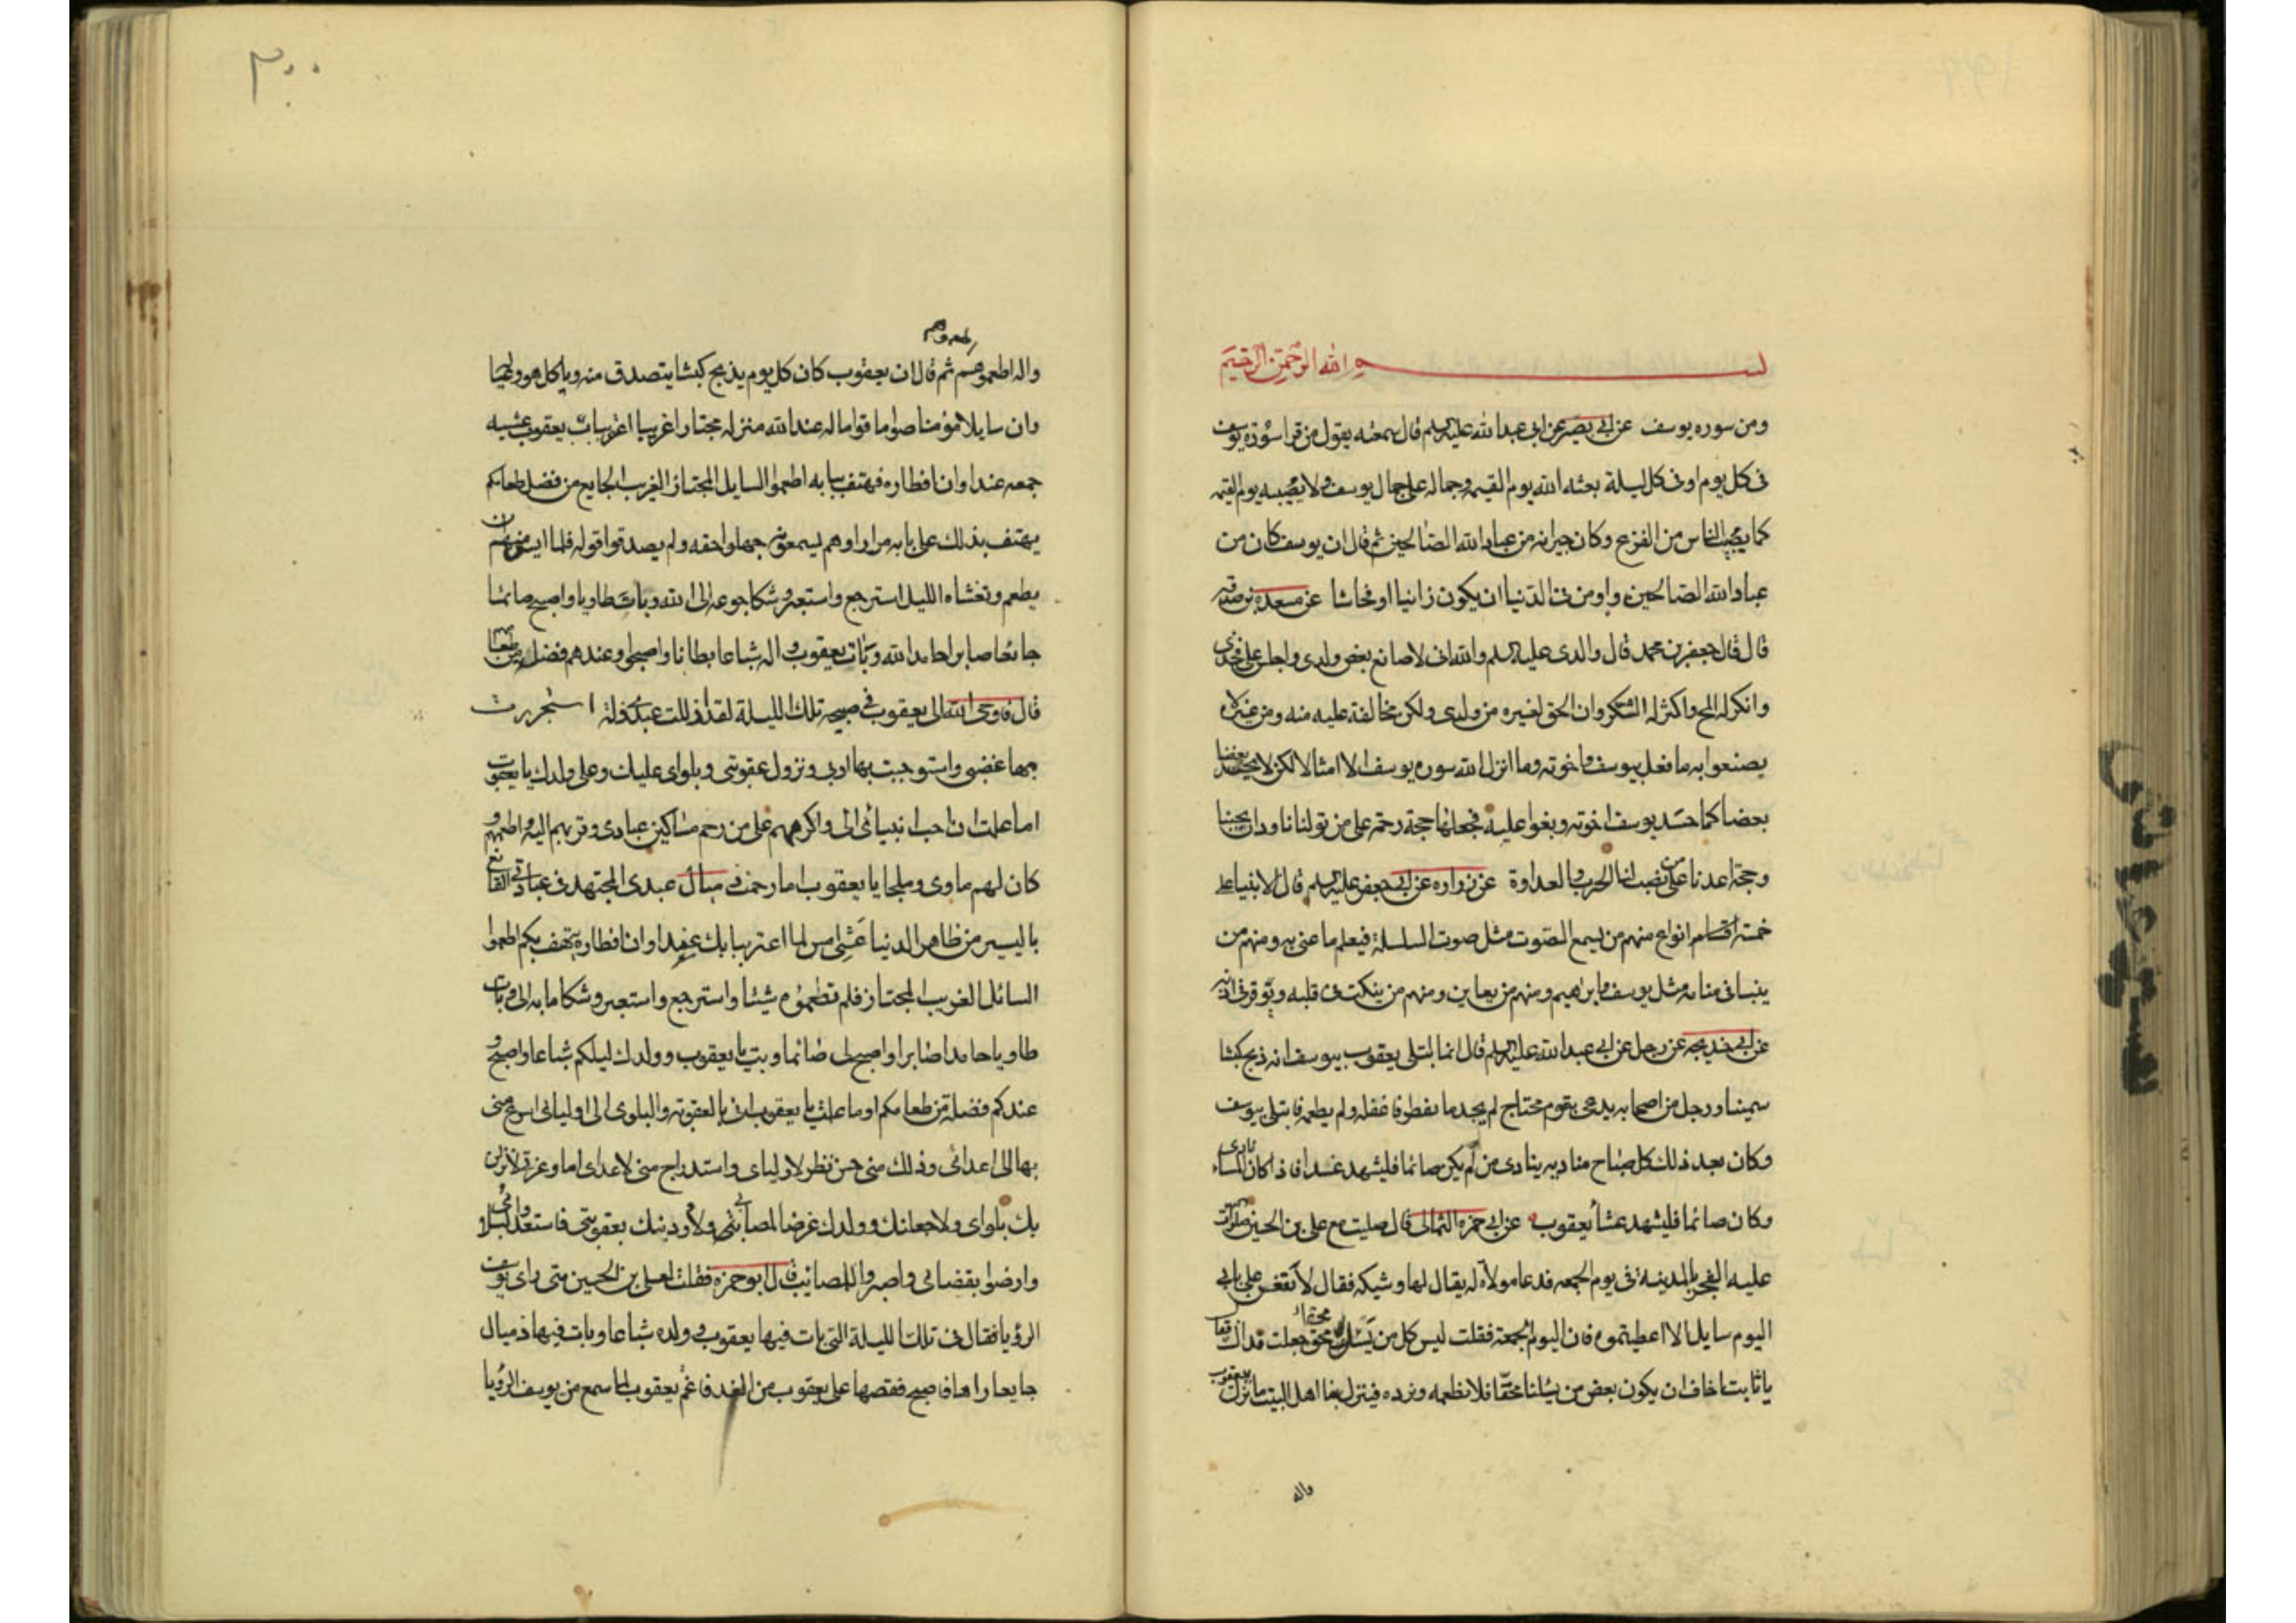 بسم الله الرحمن الرحيم
ومن سوره يوسف عن ابى بصير عن ابى عبد الله عليه السلم قال سمعته يقول من قرا سورة يوسف
فى كل يوم او فى كل ليلة بعثه الله يوم القيمه وجماله على جمال يوسف ولا يصيبه يوم القيمه
كما يصيب الناس من الفزع وكان جيرانه من عباد الله الصالحين ثم قال ان يوسف كان من
عباد الله الصالحين واومن فى الدنيا ان يكون زانيا او فحاشا عن مسعدة بن صدقه
قال قال جعفر بن محمد قال والدى عليه السلم والله انى لاصانع بعض ولدى واجلسه على فخذى
وانكز له المخ واكثر له الشكر وان الحق لغيره من ولدى ولكن مخالفة عليه منه ومن غيره لا
يصنعوا به ما فعل بيوسف واخوته وما انزل الله سوره يوسف الا امثالا لكن لا يحسد بعضنا
بعضا كما حسد يوسف اخوته وبغوا عليه فجعلها حجة رحمة على من تولانا ودان بحبنا
وحجة اعدنا على من نصب لنا الحرب والعداوة عن زراره عن ابى جعفر عليه السلم قال الانبياء على
خمسة اقسام انواع منهم من يسمع الصوت مثل صوت السلسلة فيعلم ما عنى به ومنهم من
ينبا فى منامه مثل يوسف وابراهيم ومنهم من يعاين ومنهم من ينكت فى قلبه ويوقر فى اذنه
عن ابى خديجه عن رجل عن ابى عبد الله عليه السلم قال انما ابتلى يعقوب بيوسف انه ذبح كبشا
سمينا ورجل من اصحابه يدعى بقوم محتاج لم يجد ما يفطر فاغفله ولم يطعمه فابتلى بيوسف
وكان بعد ذلك كل صباح مناديه ينادى من لم يكن صائما فليشهد غداء فاذا كان المساء نادى
وكان صائما فليشهد عشا يعقوب عن ابى حمزه الثمالى قال صليت مع على بن الحسين صلوات
عليه الفجر بالمدينة فى يوم الجمعه فدعا مولاة له يقال لها وشيكه فقال لا تقفن على بابى
اليوم سايلا الا اعطيتموه فان اليوم الجمعة فقلت ليس كل من يسئل محق جعلت فداك فقال
يا ثابت اخاف ان يكون بعض من يسئلنا محقا فلا نطعمه ونرده فينزل بنا اهل البيت ما نزل بيعقوب
واله
٣٠٠
واله اطعموهم ثم قال ان يعقوب كان كل يوم يذبح كبشا يتصدق منه وياكل هو
وان سايلا مؤمنا صواما قواما له عند الله منزله مجتازا غريبا اعتر بباب يعقوب عشيه
جمعه عند اوان افطاره فهتف ببابه اطعموا السايل المجتاز الغريب الجايع من فضل طعامكم
يهتف بذلك على بابه مرارا وهم يسمعون جهلوا حقه ولم يصدقوا قوله فلما ايس منهم ان
يطعم وتغشاه الليل استرجع واستعبر وشكا جوعه الى الله وبات طاويا واصبح صائما
جائعا صابرا حامدا لله وبات يعقوب واله شباعا بطانا واصبحوا وعندهم فضل من طعامهم
قال فاوحى الله الى يعقوب فى صبيحه تلك الليلة لقد اذللت عبدى ذلة استجررت
بها غضبى واستوجبت بها ادبى ونزول عقوبتى وبلواى عليك وعلى ولدك يا يعقوب
اما علمت ان احب انبيائى الى واكرمهم على من رحم مساكين عبادى وقربهم اليه واطعمهم و
كان لهم ماوى وملجا يا يعقوب اما رحمت ذميال عبدى المجتهد فى عبادتى القانع
باليسير من ظاهر الدنيا عشى امس لما اعتر ببابك عند اوان افطاره يهتف بكم اطعموا
السائل الغريب المجتاز فلم تطعموه شيئا واسترجع واستعبر وشكا ما به الى وبات
طاويا حامدا صابرا واصبح لى صائما وبت يا يعقوب وولدك ليلكم شباعا واصبح و
عندكم فضلة من طعامكم اوما علمت يا يعقوب انى بالعقوبة والبلوى الى اوليائى اسرع منى
بها الى اعدائى وذلك منى حسن نظر لاوليائى واستدراج منى لاعداى اما وعزتى لانزلن
بك بلواى ولاجعلنك وولدك غرضا لمصائبى ولاودبنك بعقوبتى فاستعد لبلواى
وارضوا بقضائى واصبروا للمصائب قال ابو حمزه فقلت لعلى بن الحسين متى راى يوسف
الرؤيا فقال فى تلك الليلة التى بات فيها يعقوب وولده شباعا وبات فيها ذميال
جايعا راها فاصبح فقصها على يعقوب من الغد فاغم يعقوب لما سمع من يوسف الرؤيا